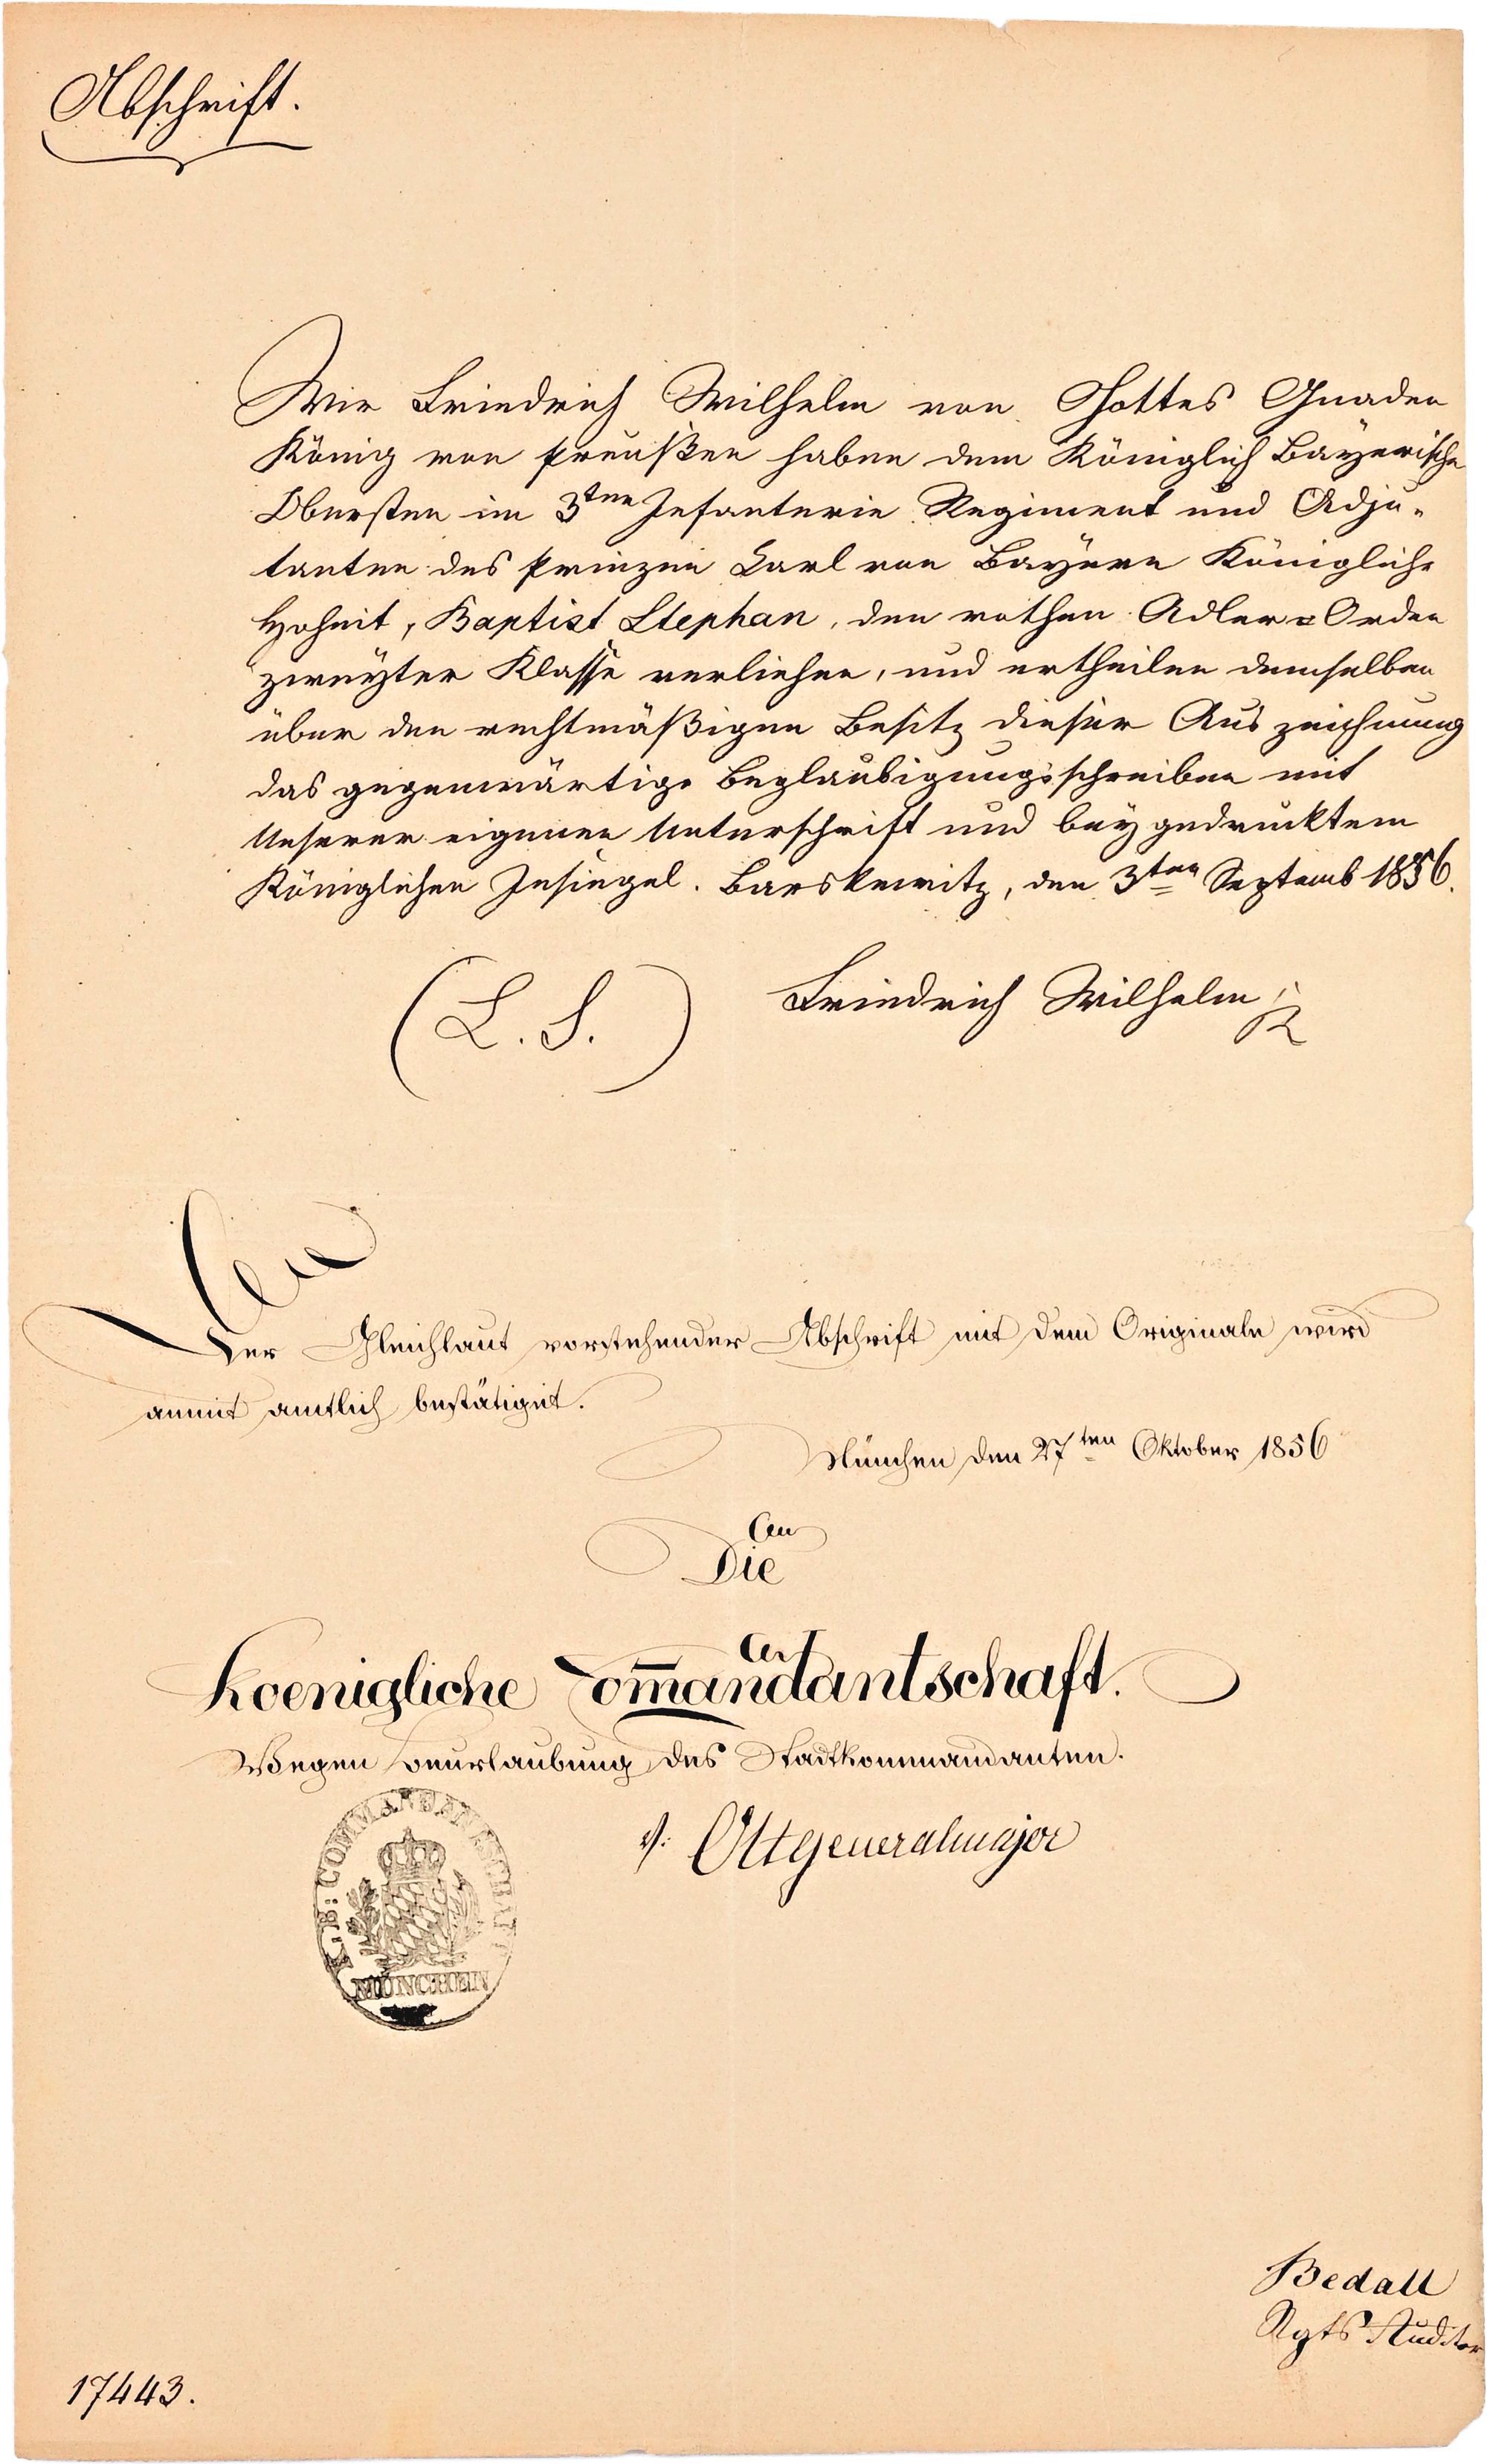 Abschrift.
Wir Friedrich Wilhelm von Gottes Gnaden
König von Preußen haben dem Königlich Bayerische
Obersten im 3ten Infanterie Regiment und Adju-
tanten des Prinzen Carl von Bayern Königliche
Hoheit, Baptist Stephan, den rothen Adler=Orden
zweyter Klasse verliehen, und ertheilen demselben
über den rechtmäßigen Besitz dieser Auszeichnung
das gegenwärtige Beglaubigungsschreiben mit
Unserer eigenen Unterschrift und beygedrucktem
Königlichen Insiegel. Barskewitz, den 3ten Septemb 1856.
(L. S.) Friedrich Wilhelm
Der Gleichlaut vorstehender Abschrift mit dem Originale wird
anmit amtlich bestätiget.
München den 27ten Oktober 1856
Die
Koenigliche Com̄andantschaft.
Wegen Beurlaubung des Stadtkommandanten.
v. Ott Generalmajor
K. B. COMMANDANTSCHAFT
MÜNCHEN
Bedall
Rgts Auditor
17443.